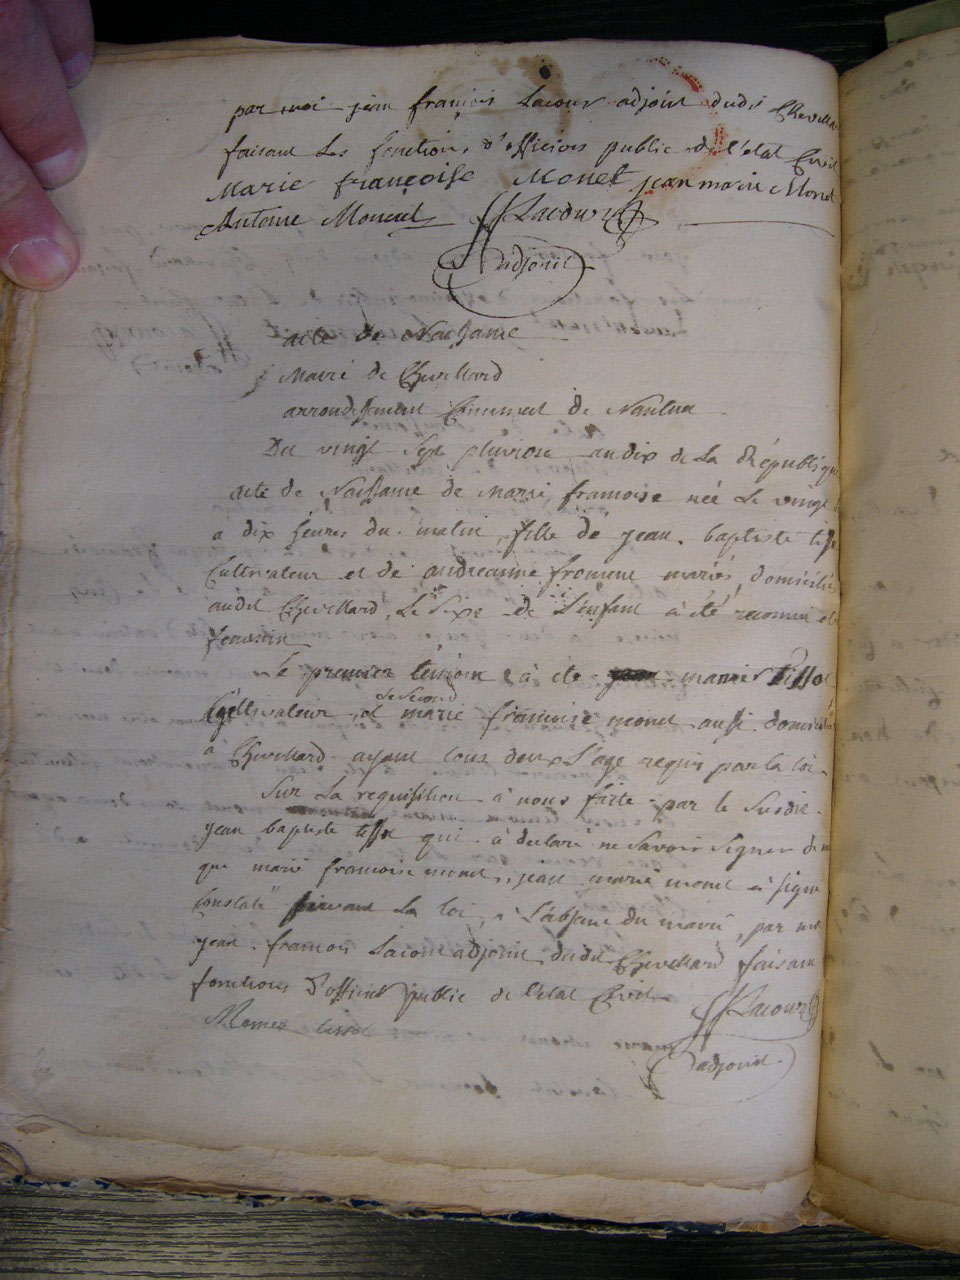 par moi jean francois Lacour adjoint dudit Chevillard
faisant les fonctions d'officiers public de l'etat Civil
Marie françoise Monet jean marie Monet
Antoine Monet JF Lacour
adjoint
acte de Naissance
Mairie de Chevillard
arrondissement Communal de Nantua
Du vingt sept pluviose an dix de la République
acte de Naissance de Marie francoise née le vingt
a dix heures du matin, fille de jean baptiste tissot
Cultivateur et de andreanne froment mariés, domiciliés
audit Chevillard, le sexe de l'enfant à été reconnu etre
feminin
le premier témoin à été marie Tissot
Cultivateur, et le second marie francoise monet aussi domicilié
à Chevillard ayant tous deux l'age requis par la loi
Sur la requisition à nous faite par le susdit
jean baptiste tissot qui à déclaré ne savoir signer
que marie francoise monet, jean marie monet à signé
Constaté suivant la loi, à l'absence du maire, par moi
jean francois Lacour adjoint dudit Chevillard faisant
fonctions d'officier public de l'état Civil JF Lacour
tissot
adjoint